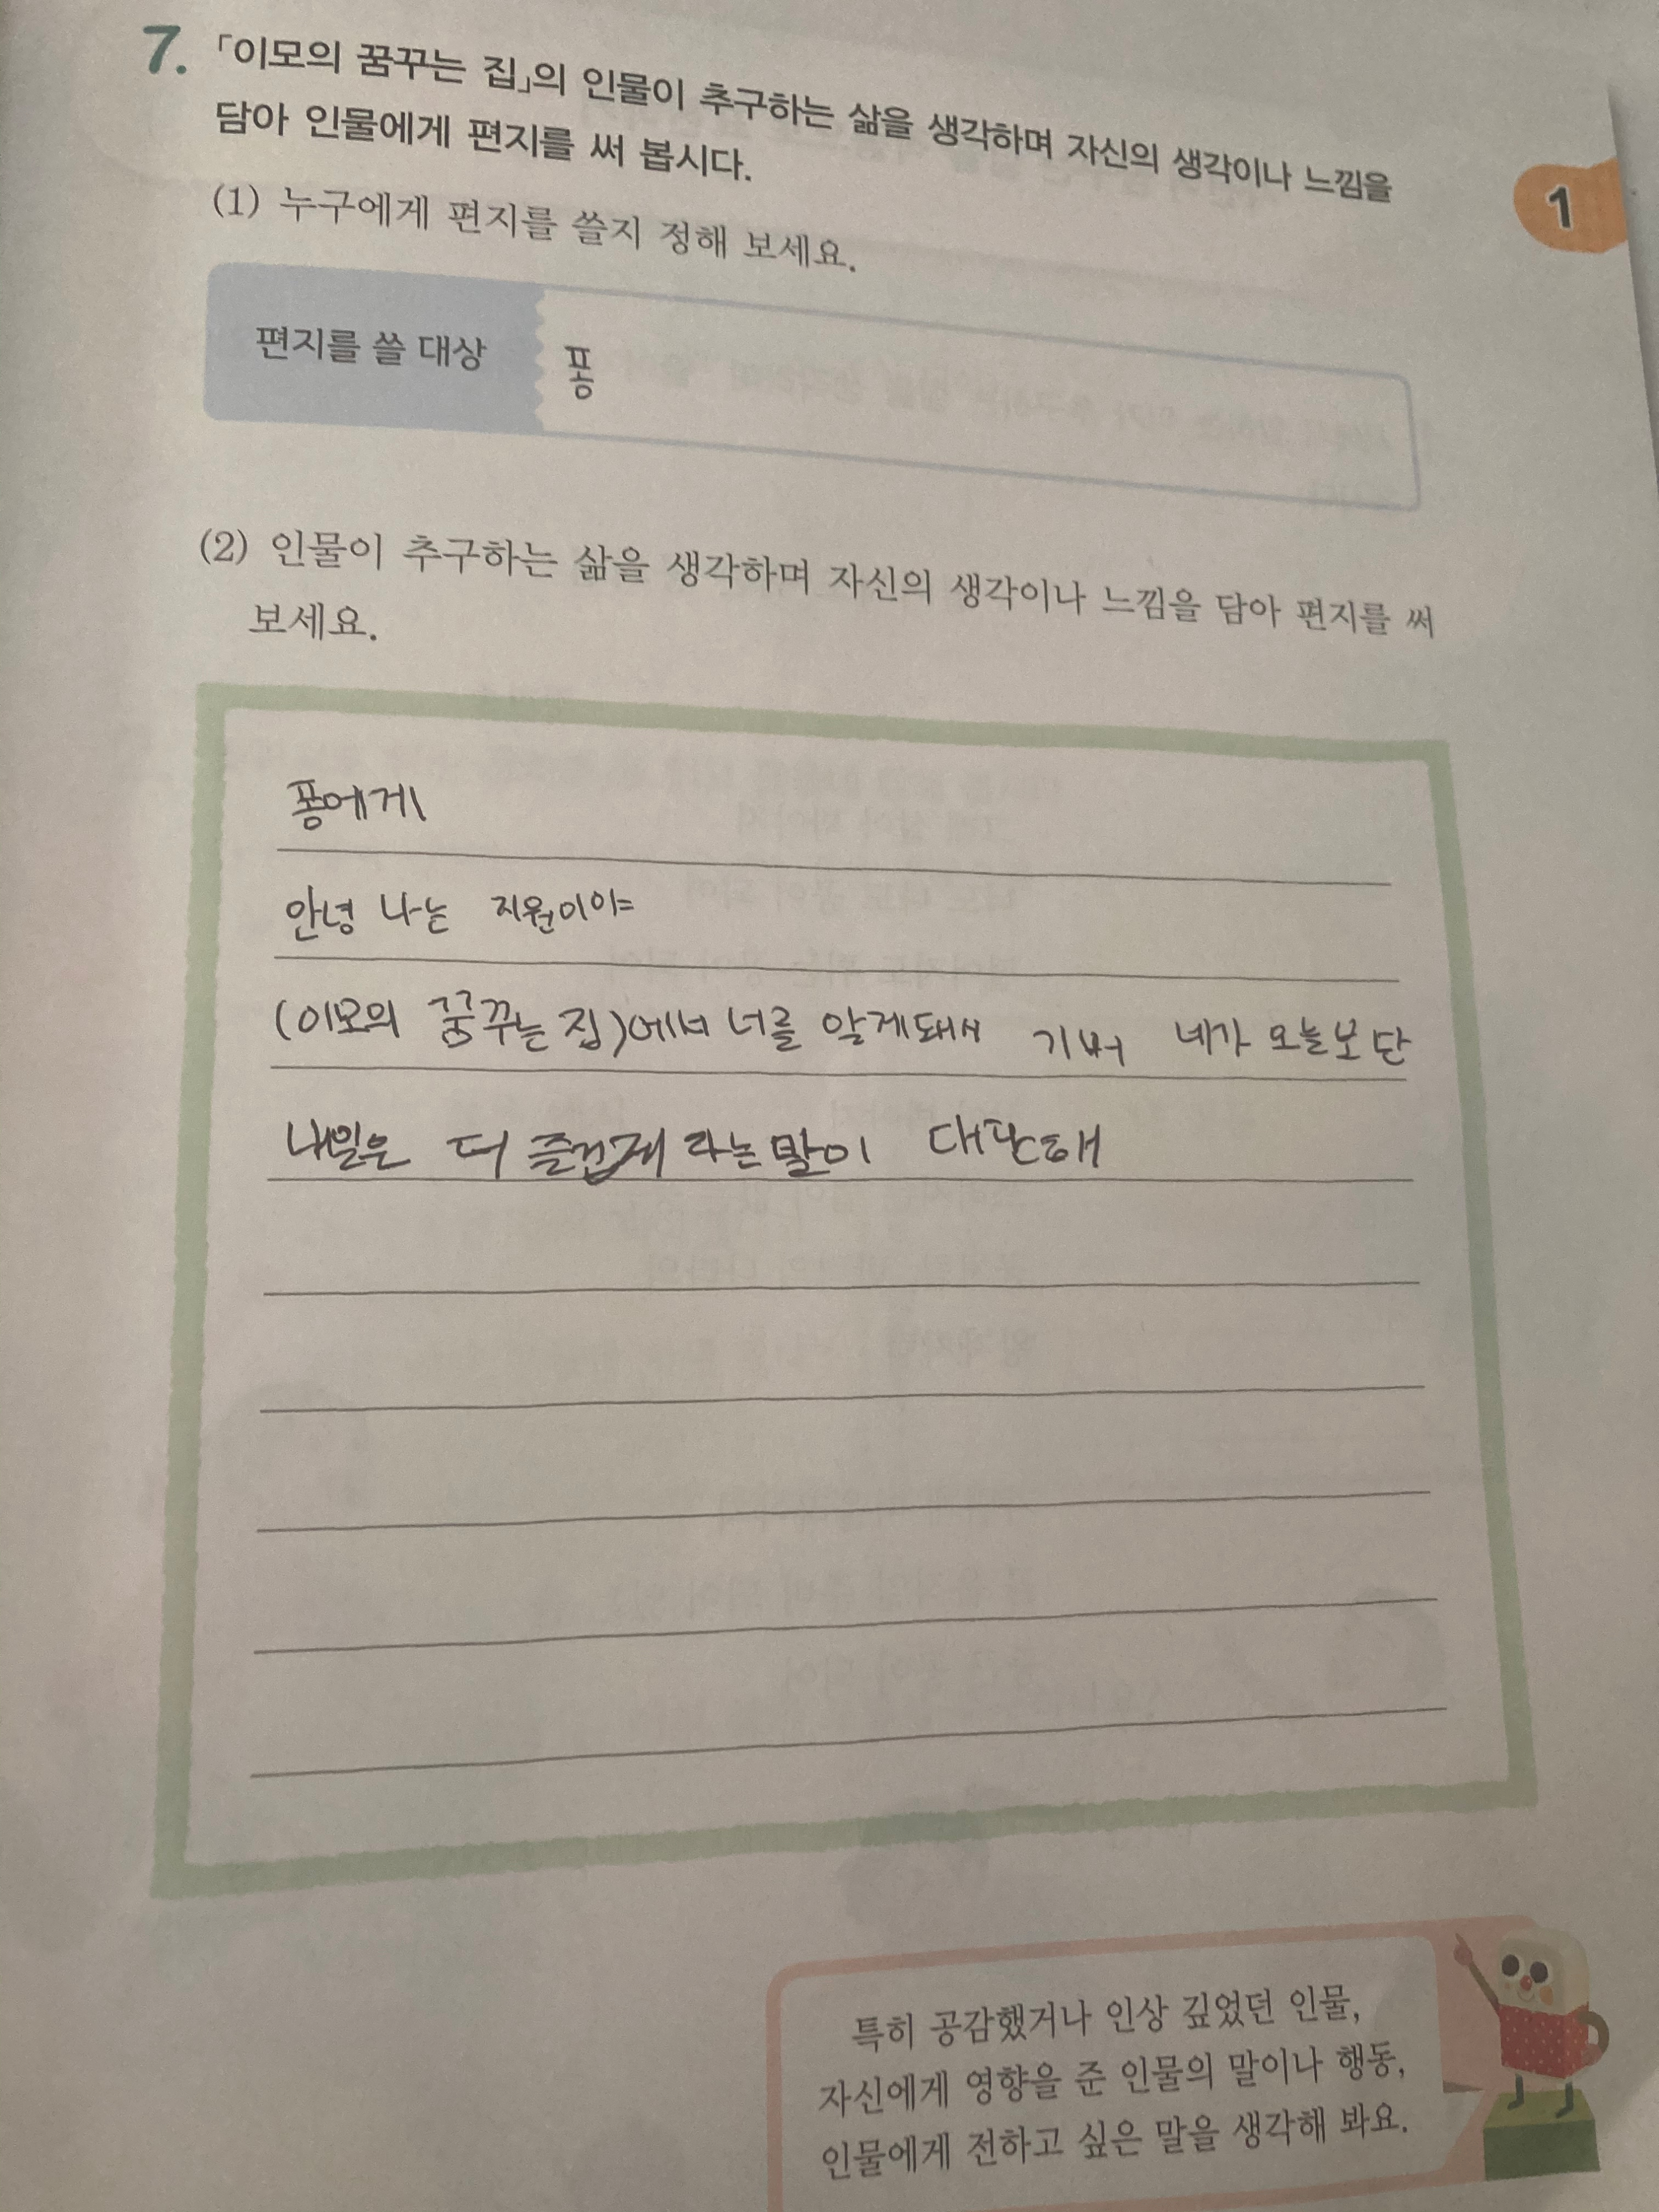 7. 「이모의 꿈꾸는 집」의 인물이 추구하는 삶을 생각하며 자신의 생각이나 느낌을
담아 인물에게 편지를 써 봅시다.
1
(1) 누구에게 편지를 쓸지 정해 보세요.
편지를 쓸 대상
퐁
(2) 인물이 추구하는 삶을 생각하며 자신의 생각이나 느낌을 담아 편지를 써
보세요.
퐁에게
안녕 나는 지원이야
(이모의 꿈꾸는 집)에서 너를 알게돼서 기뻐 네가 오늘보단
내일은 더 즐겁게 라는말이 대단해
특히 공감했거나 인상 깊었던 인물,
자신에게 영향을 준 인물의 말이나 행동,
인물에게 전하고 싶은 말을 생각해 봐요.